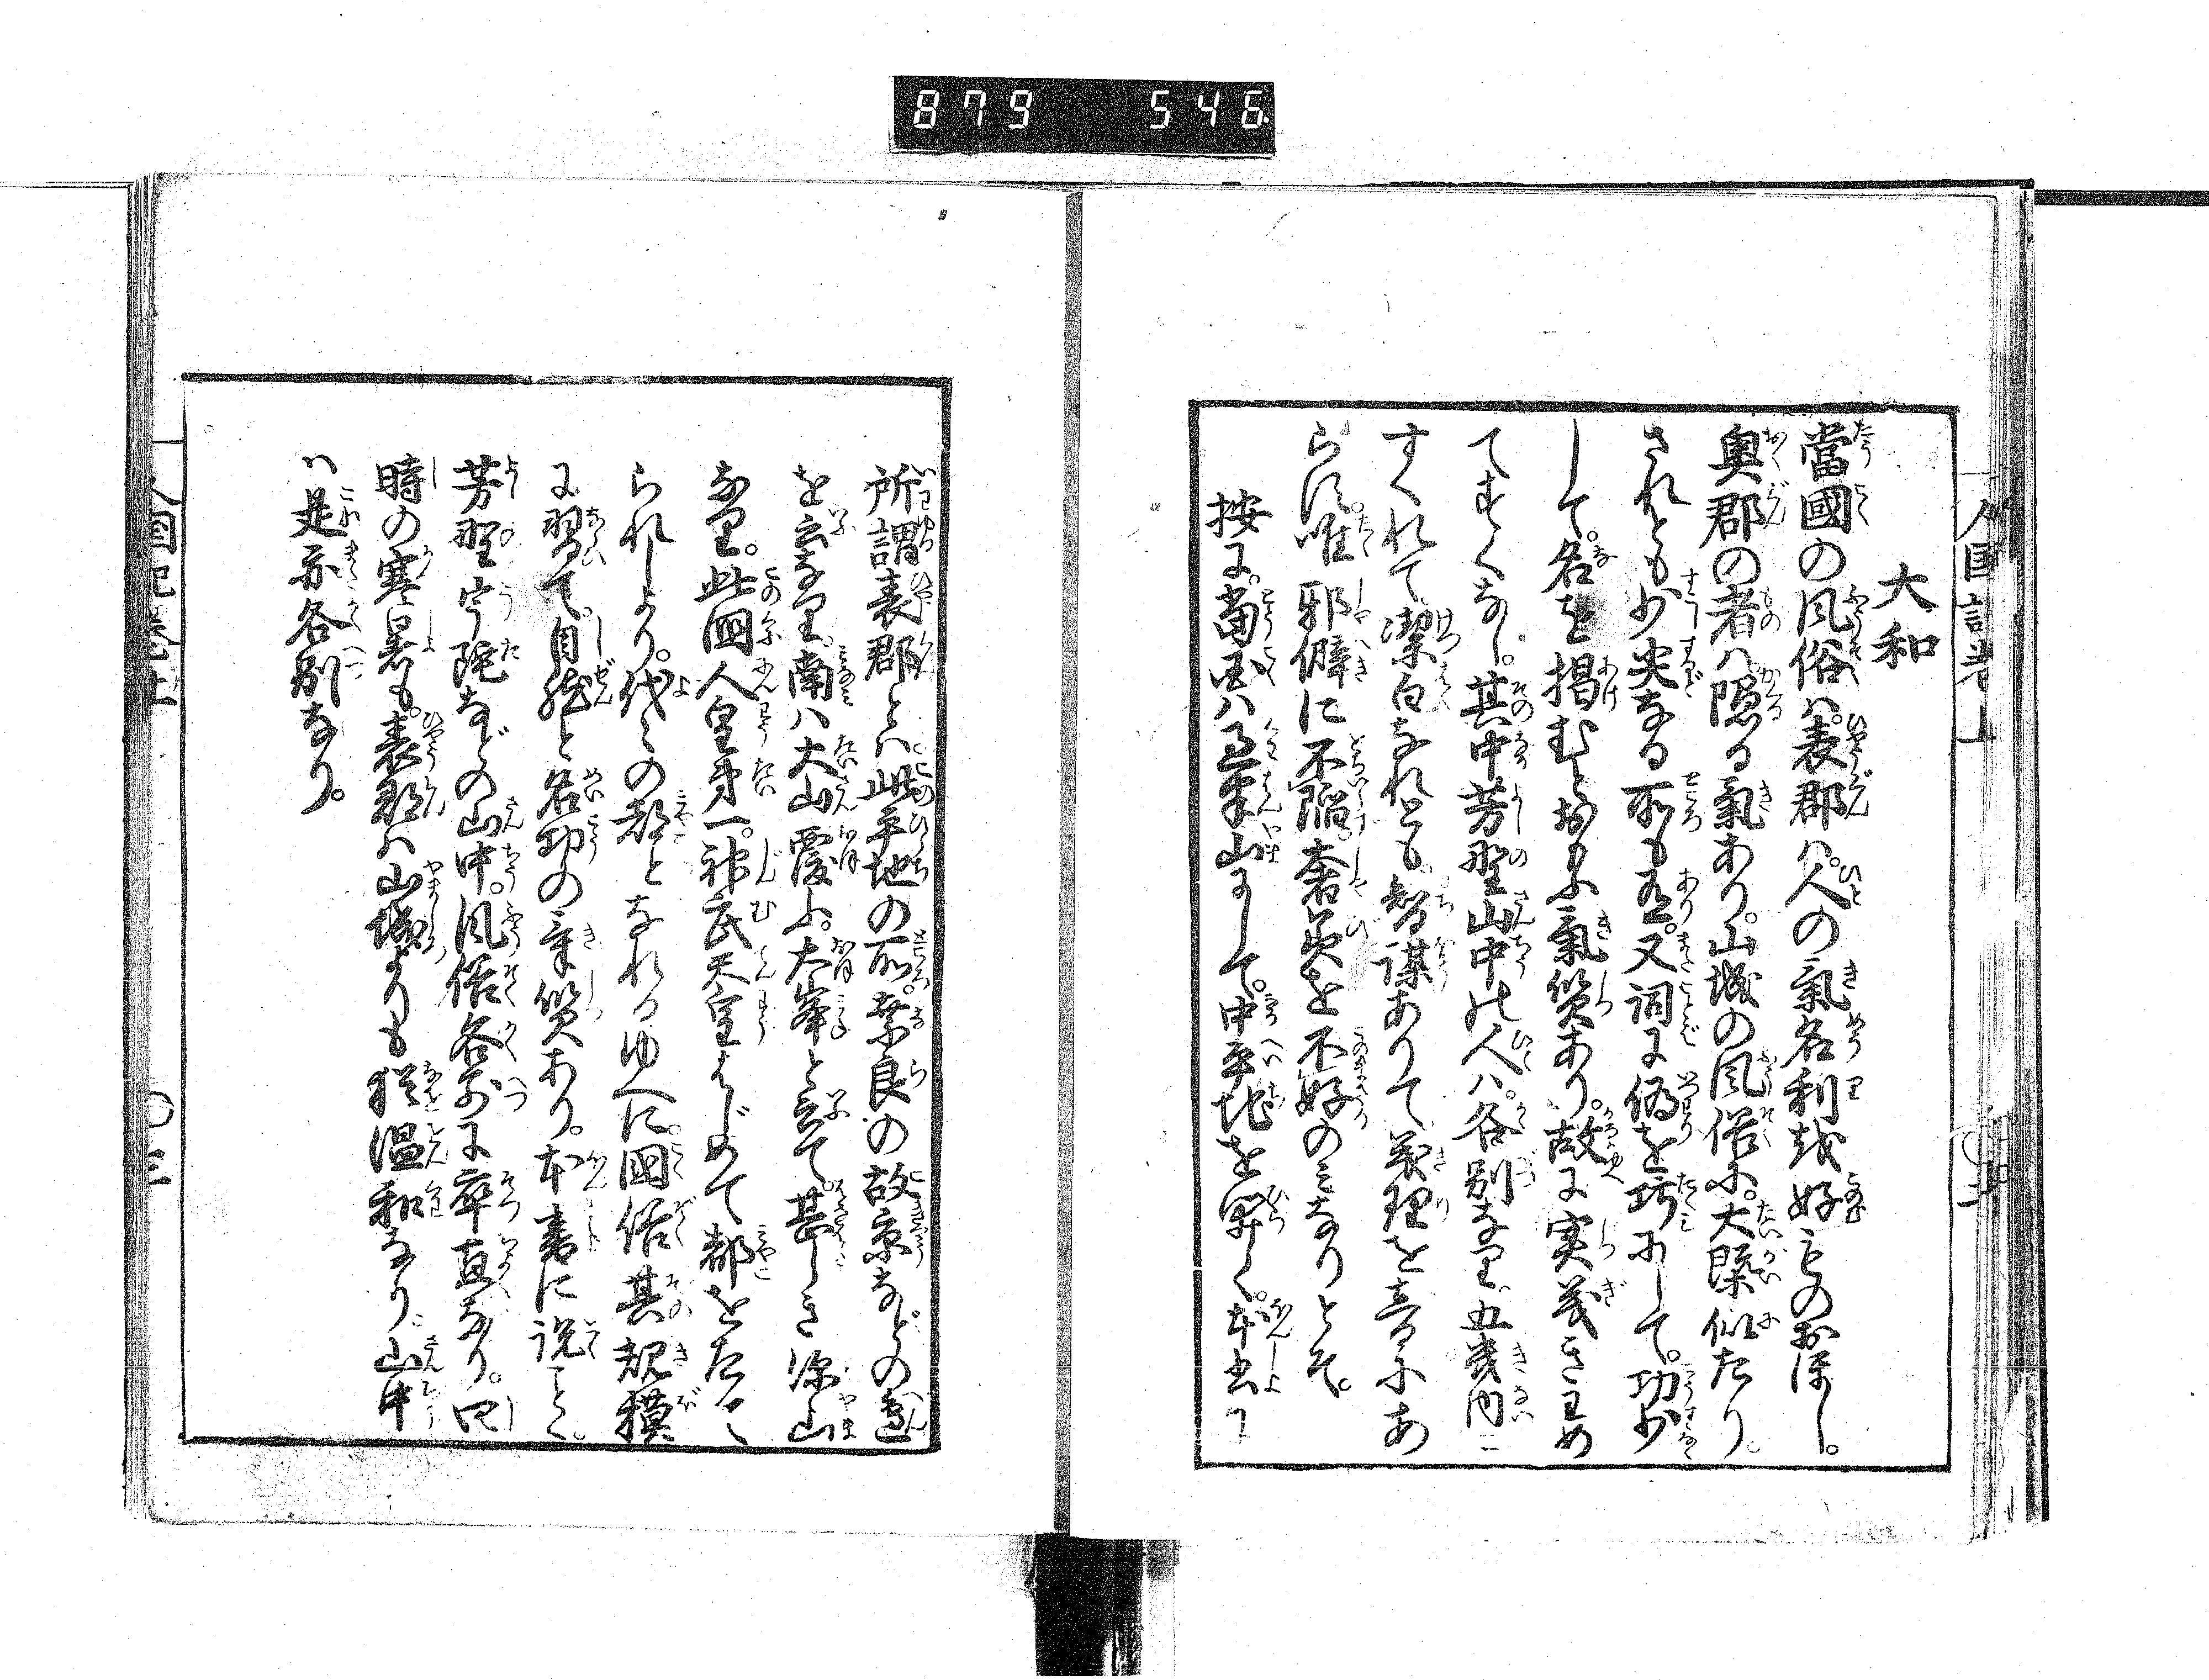 879 546
大和
當國の風俗ハ。表郡ハ。人の氣名利を好ものおほし。
奥郡の者ハ。隠る氣あり。山城の風俗に。大槩似たり。
されとも少尖なる所も有。又詞に偽を巧にして。功少
して。名を掲むとおもふ氣質あり。故に実義きわめ
てすくなし。其中芳野山中の人ハ。各別なり。五畿内に
すくれて潔白なれとも。智謀ありて義理を音にあ
らハ。唯邪僻に不陥。奢美を不好のミなりとそ。
按に。當国ハ
山にして。中平地を開く。本書に
所謂表郡とハ此平地の所。奈良の故京などの邊
を云なり。南ハ大山覆ふ。大峯と云て。甚しき深山
なり。此國人皇第一。神武天皇はじめて都をたて
られしより。代々の都となれるゆへに。國俗其規模
に習て。自然と名功の氣質あり。本書に説ごとく。
芳野宇陀などの山中。風俗各別に率直なり。四
時の寒暑も。表郡ハ山城よりも猶温和なり。山中
ハ是亦各別なり。
人國記卷上 〇三